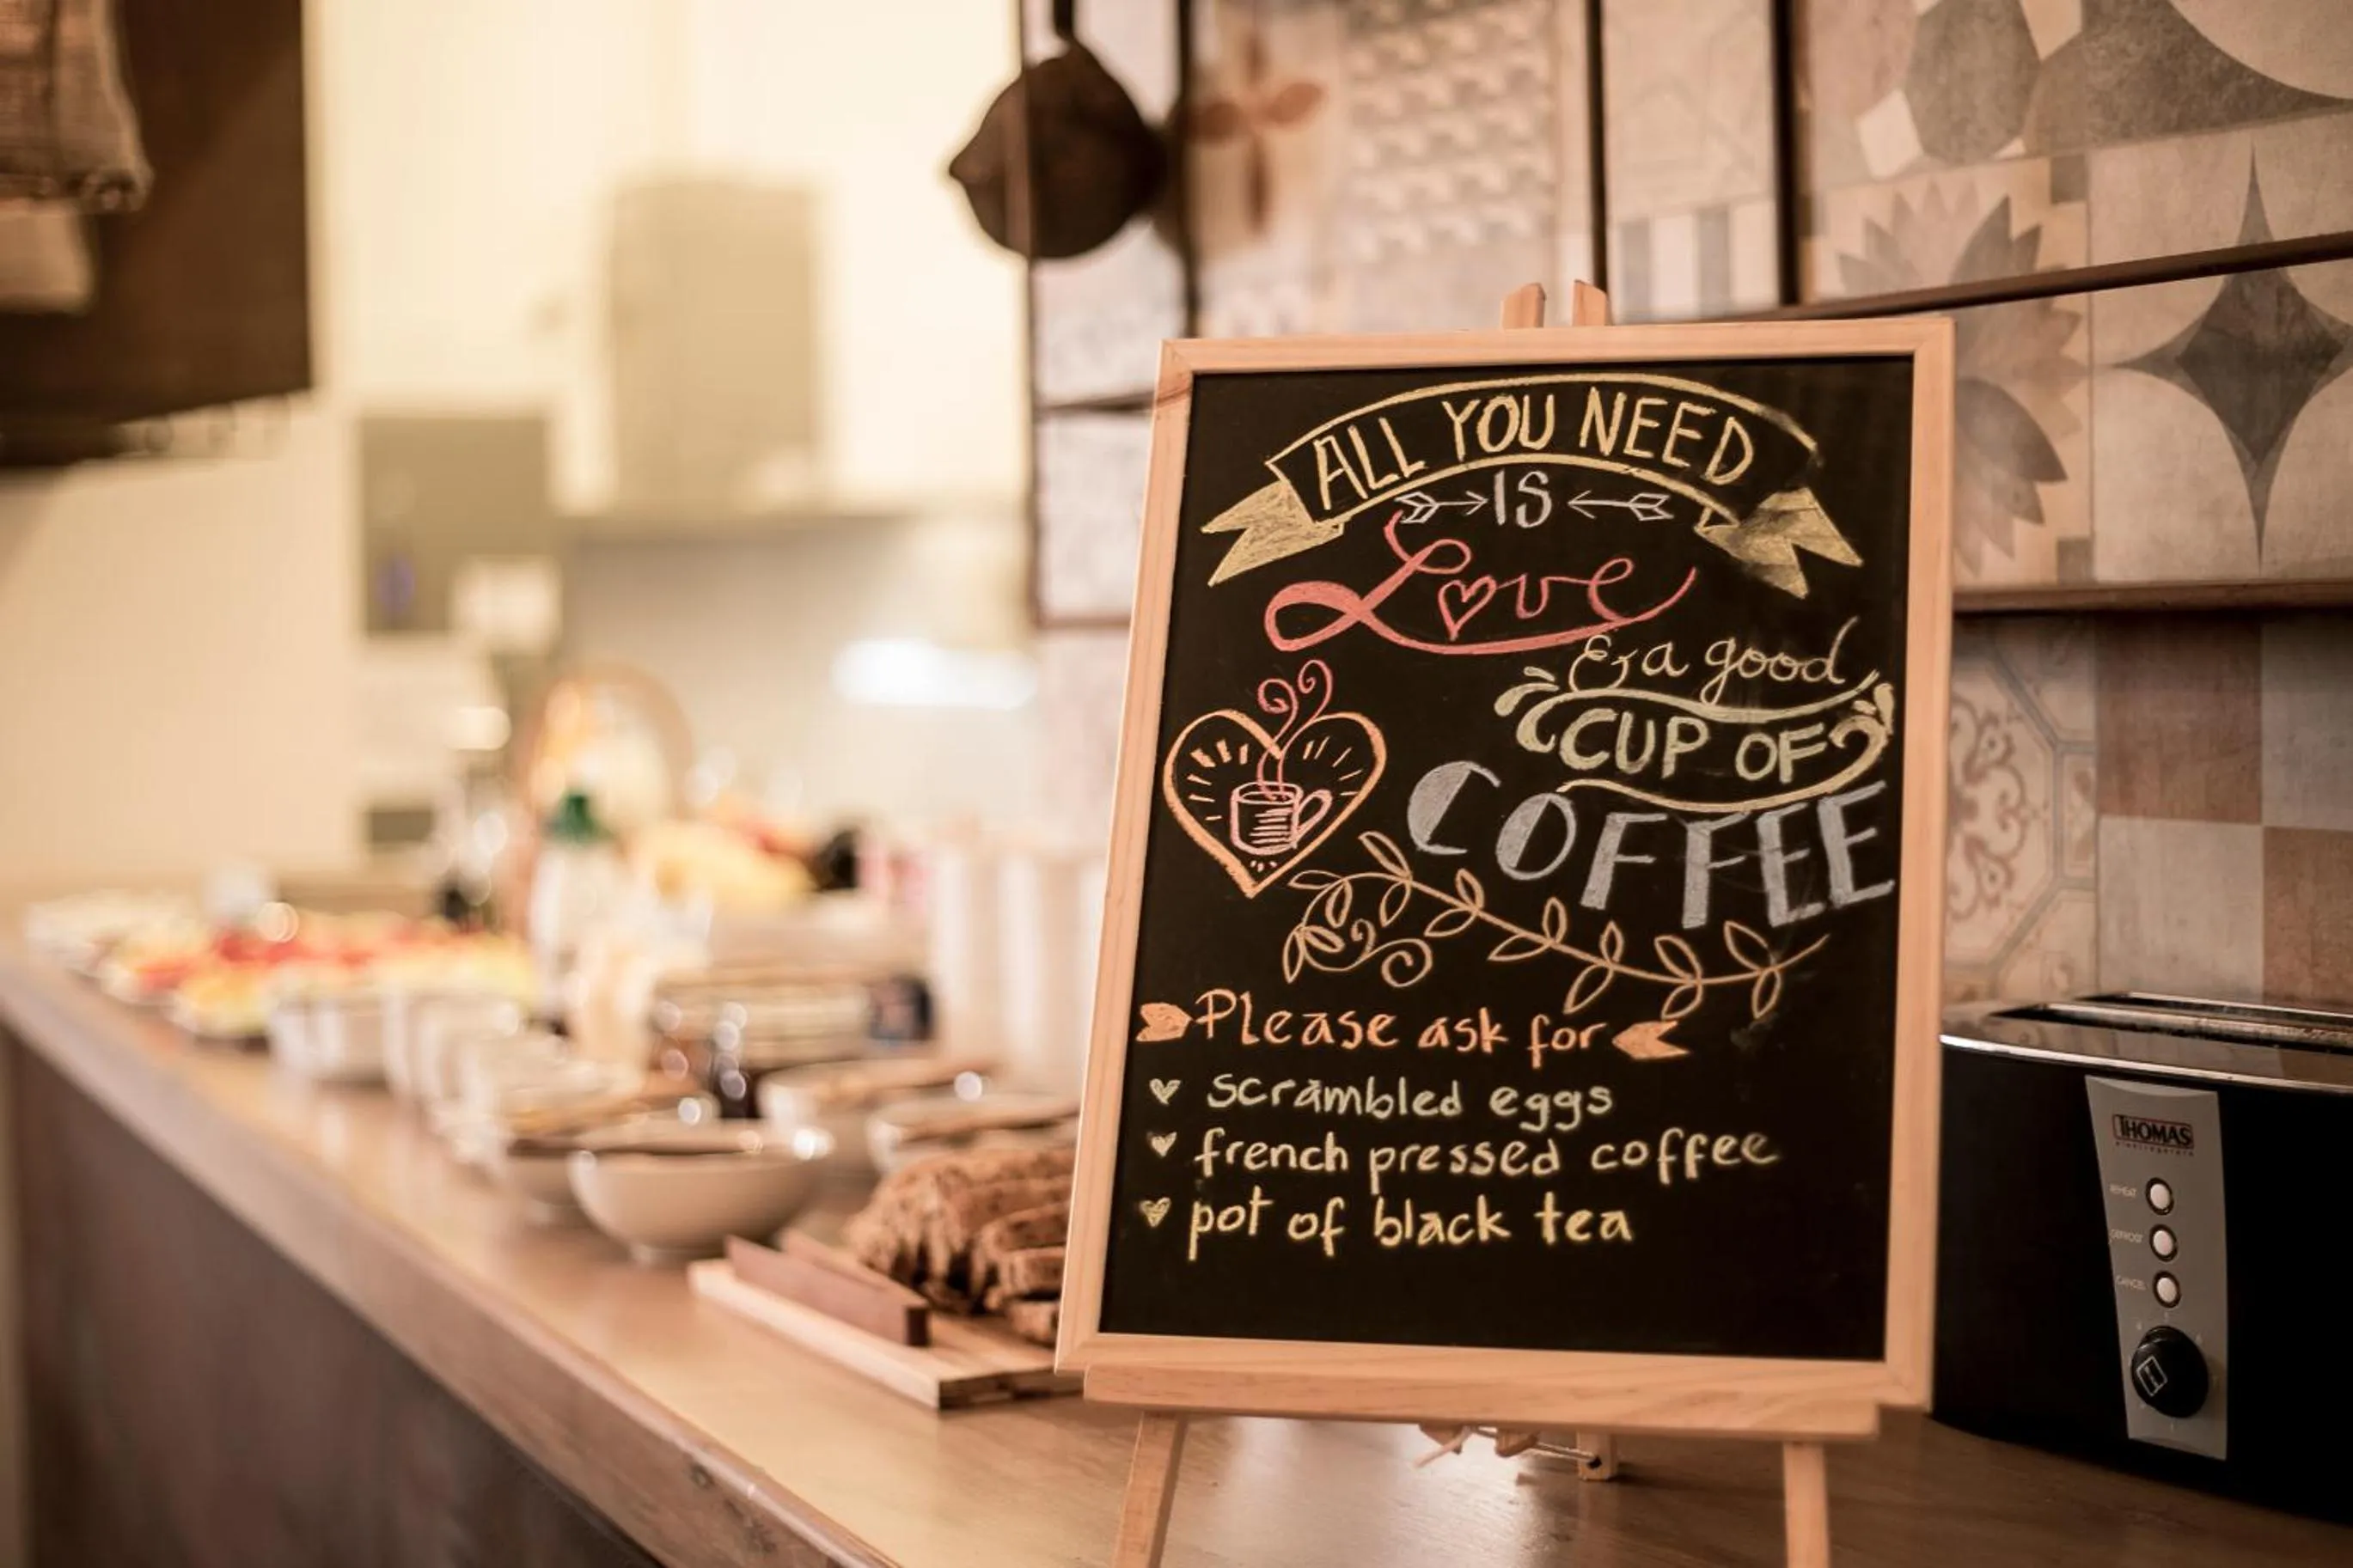 ALL YOU NEED
IS
Love
& a good
CUP OF
COFFEE
Please ask for
scrambled eggs
french pressed coffee
pot of black tea
THOMAS
REHEAT
DEFROST
CANCEL